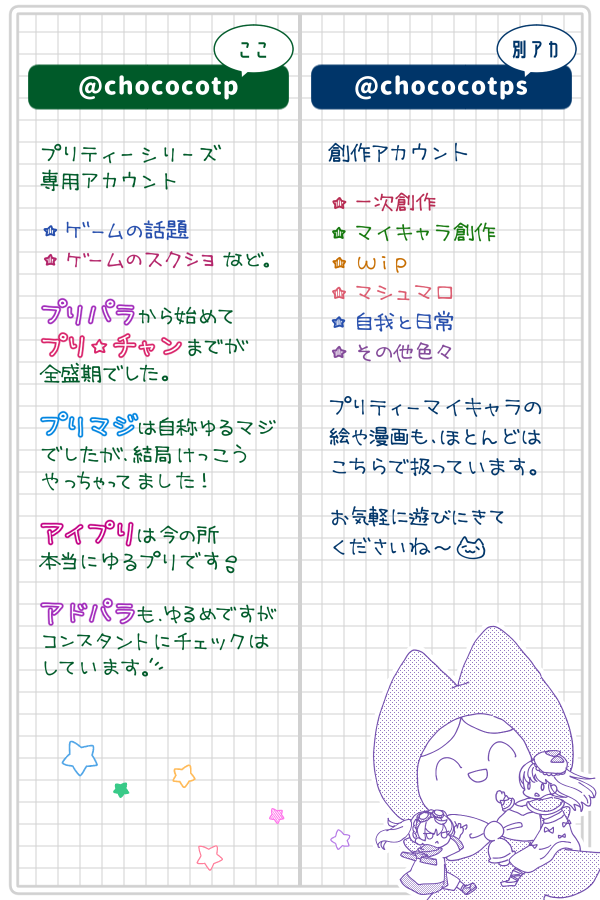 ここ
@chococotp
プリティーシリーズ
専用アカウント
ゲームの話題
ゲームのスクショ など。
プリパラから始めて
プリ☆チャンまでが
全盛期でした。
プリマジは自称ゆるマジ
でしたが、結局けっこう
やっちゃってました！
アイプリは今の所
本当にゆるプリです
アドパラも、ゆるめですが
コンスタントにチェックは
しています。
別アカ
@chococotps
創作アカウント
一次創作
マイキャラ創作
wip
マシュマロ
自我と日常
その他色々
プリティーマイキャラの
絵や漫画も、ほとんどは
こちらで扱っています。
お気軽に遊びにきて
くださいね～